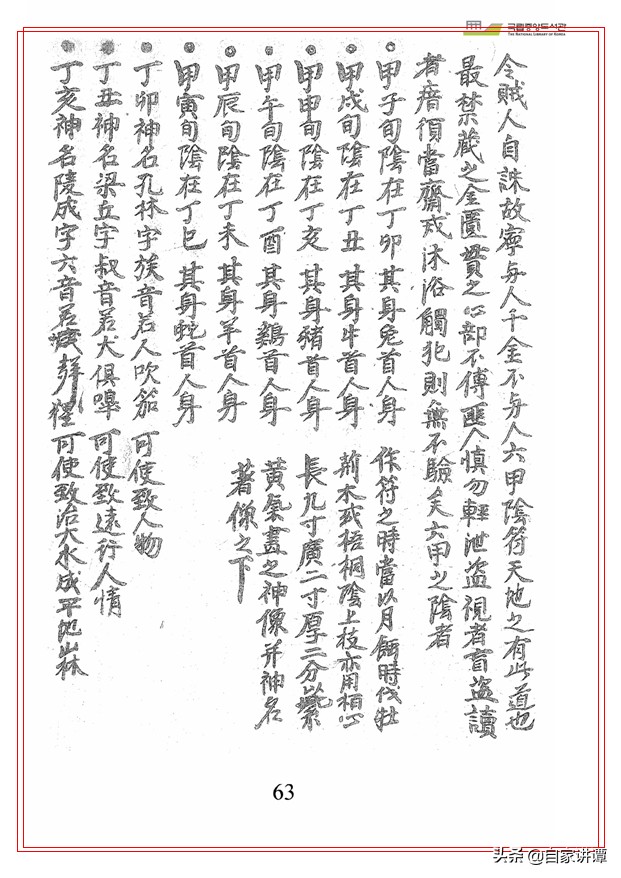 국립중앙도서관
THE NATIONAL LIBRARY OF KOREA
令賊人自誅故寧与人千金不与人六甲陰符天地之有此道也
最禁藏之金匱貴之心部不傳匪人慎勿輕泄盜視者盲盜讀
者瘖須當齋戒沐浴觸犯則無不驗矣六甲之陰者
甲子旬陰在丁卯其身兔首人身
甲戌旬陰在丁丑其身牛首人身
甲申旬陰在丁亥其身豬首人身
甲午旬陰在丁酉其身鷄首人身
甲辰旬陰在丁未其身羊首人身
甲寅旬陰在丁巳其身蛇首人身
作符之時當以月蝕時伐牡
荊木或梧桐陰上枝亦用栢心
長九寸廣二寸厚二分以紫
黃氣畫之神像并神名
著像之下
丁卯神名孔林字族音若人吹笳可使致人物
丁丑神名梁丘字叔音若犬俱嘷可使致遠行人情
丁亥神名陵成字六音若群猩可使致治大水成平地山林
63
头条 @自家讲谭